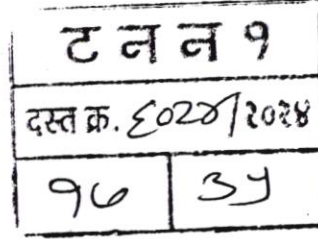 ट न न १
दस्त क्र. ६०२४/२०२४
१७ ३५